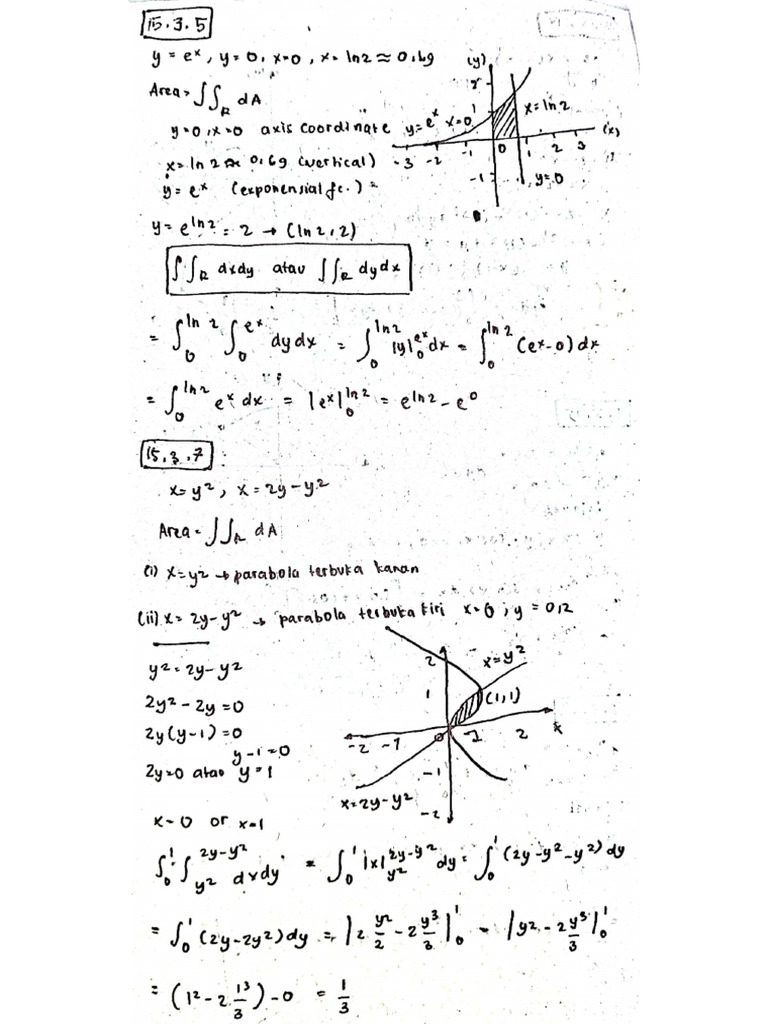 15.3.5
y = eˣ, y = 0, x=0, x = ln 2 ≈ 0,69
Area = ∫∫_R dA
y=0, x=0 axis coordinate
x = ln 2 ≈ 0,69 (vertical)
y = eˣ (exponensial fc.) =
y = e^(ln 2) = 2 → (ln 2, 2)
(y)
2
1
y = eˣ x=0
x = ln 2
(x)
-3 -2 -1 0 1 2 3
-1
y=0
∫∫_R dxdy atau ∫∫_R dydx
= ∫₀^(ln 2) ∫₀^(eˣ) dydx = ∫₀^(ln 2) |y|₀^(eˣ) dx = ∫₀^(ln 2) (eˣ-0) dx
= ∫₀^(ln 2) eˣ dx = |eˣ|₀^(ln 2) = e^(ln 2) - e⁰
15.3.7
x = y², x = 2y - y²
Area = ∫∫_R dA
(i) x = y² → parabola terbuka kanan
(ii) x = 2y - y² → parabola terbuka kiri x=0; y = 0,2
y² = 2y - y²
2y² - 2y = 0
2y(y-1) = 0
y-1 = 0
2y=0 atau y = 1
x = 0 or x=1
2
x=y²
1
(1,1)
-2 -1 0 1 2 x
-1
x=2y-y²
-2
∫₀¹ ∫_(y²)^(2y-y²) dxdy = ∫₀¹ |x|_(y²)^(2y-y²) dy = ∫₀¹ (2y-y²-y²) dy
= ∫₀¹ (2y-2y²) dy = |2 y²/2 - 2 y³/3|₀¹ = |y² - 2y³/3|₀¹
= (1² - 2 · 1³/3) - 0 = 1/3